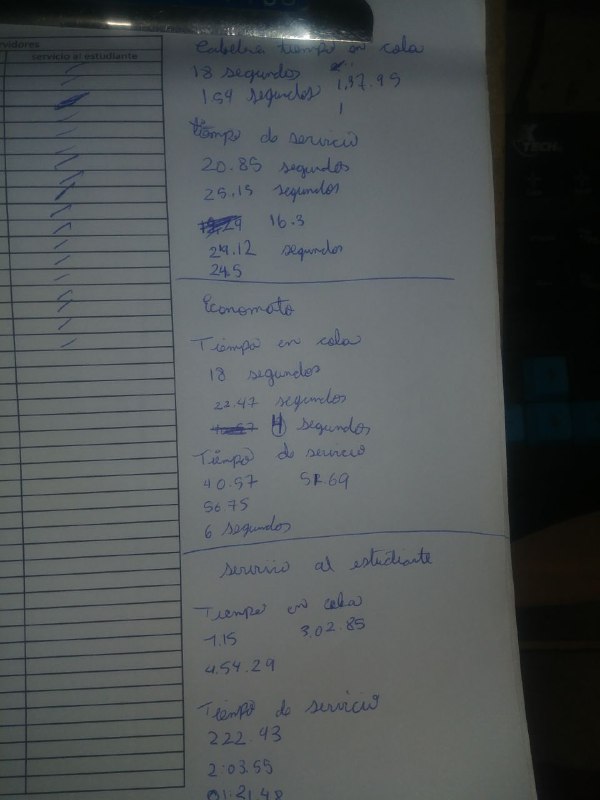 vidores
servicio al estudiante
tiempo en cola
18 segundos
1,37.95
154 segundos
1
tiempo de servicio
20.85 segundos
25.15 segundos
16.3
24.12 segundos
24.5
Economato
Tiempo en cola
18 segundos
22.47 segundos
4 segundos
Tiempo de servicio
40.57 51.69
56.75
6 segundos
servicio al estudiante
Tiempo en cola
1.15 3.02.85
4.54.29
Tiempo de servicio
222.43
2:03.55
01:31.48
TECH